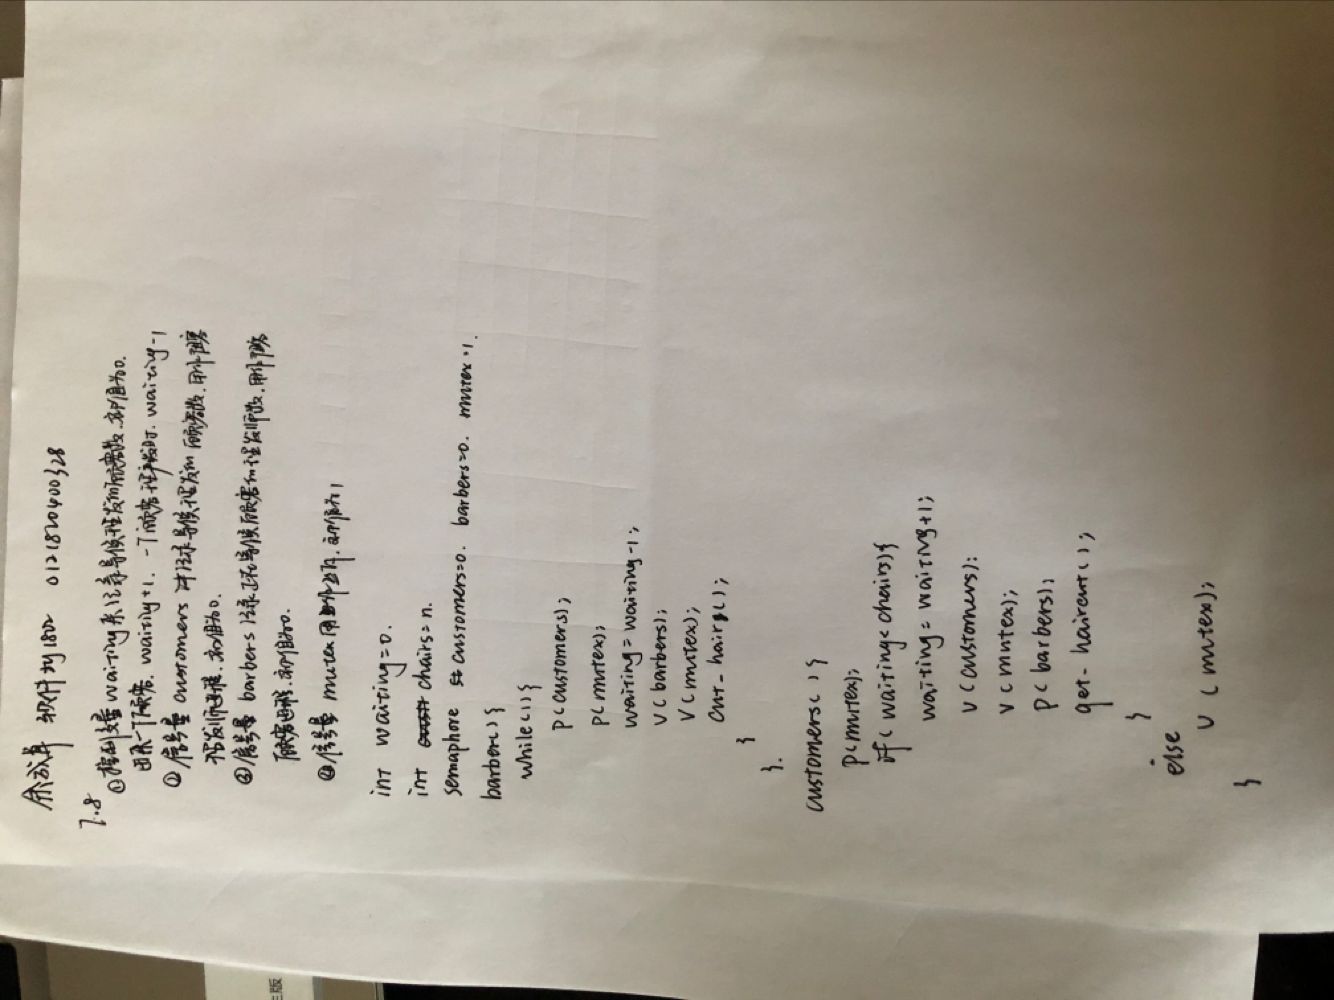 软件zy1802 0121820400328
7.8
①控制变量waiting来记录等候理发的顾客数,初值为0.
进来一个顾客,waiting+1,一个顾客理发时,waiting-1
②信号量customers 记录等候理发的顾客数,用作阻塞
理发师进程,初值为0.
③信号量 barbers 记录正在等候顾客的理发师数,用作阻塞
顾客进程,初值为0.
④信号量 mutex 用作互斥,初值为1
生版
int waiting=0.
int chairs=n.
semaphore customers=0. barbers=0. mutex=1.
barber(){
while(1){
P(customers);
P(mutex);
waiting=waiting-1;
V(barbers);
V(mutex);
cut_hair();
}
}.
customers(){
P(mutex);
if(waiting<chairs){
waiting=waiting+1;
V(customers);
V(mutex);
P(barbers);
get-haircut();
}
else
V(mutex);
}